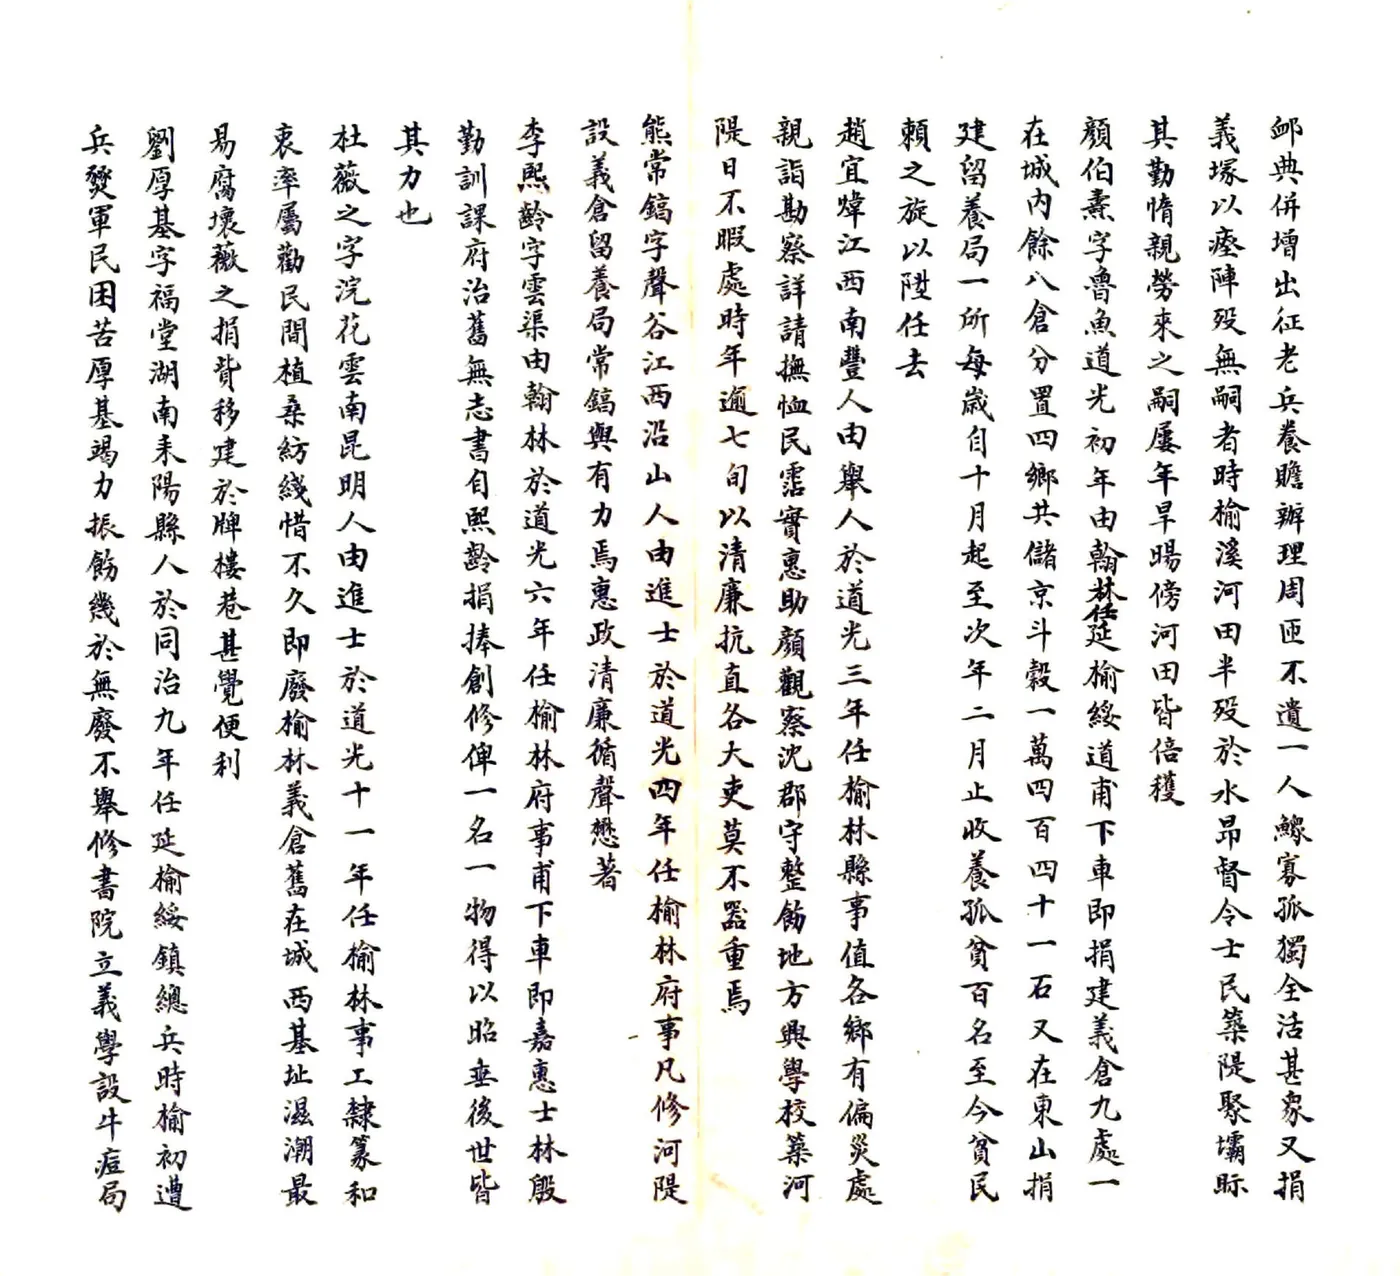 卹典併增出征老兵養贍辦理周匝不遺一人鰥寡孤獨全活甚衆又捐
義塚以瘞陣歿無嗣者時榆溪河田半歿於水昂督令士民築隄聚壩眎
其勤惰親勞來之嗣屢年旱暘傍河田皆倍穫
顏伯燾字魯魚道光初年由翰林任延榆綏道甫下車即捐建義倉九處一
在城內餘八倉分置四鄉共儲京斗穀一萬四百四十一石又在東山捐
建留養局一所每歲自十月起至次年二月止收養孤貧百名至今貧民
賴之旋以陞任去
趙宜煒江西南豐人由舉人於道光三年任榆林縣事值各鄉有偏災處
親詣勘察詳請撫恤民霑實惠助顏觀察沈郡守整飭地方興學校築河
隄日不暇處時年逾七旬以清廉抗直各大吏莫不器重焉
熊常錥字聲谷江西沿山人由進士於道光四年任榆林府事凡修河隄
設義倉留養局常錥與有力焉惠政清廉循聲懋著
李熙齡字雲渠由翰林於道光六年任榆林府事甫下車即嘉惠士林殷
勤訓課府治舊無志書自熙齡捐捧創修俾一名一物得以昭垂後世皆
其力也
杜薇之字浣花雲南昆明人由進士於道光十一年任榆林事工隸篆和
衷率屬勸民間植桑紡綫惜不久即廢榆林義倉舊在城西基址濕潮最
易腐壞薇之捐貲移建於牌樓巷甚覺便利
劉厚基字福堂湖南耒陽縣人於同治九年任延榆綏鎮總兵時榆初遭
兵燹軍民困苦厚基竭力振飭幾於無廢不舉修書院立義學設牛痘局